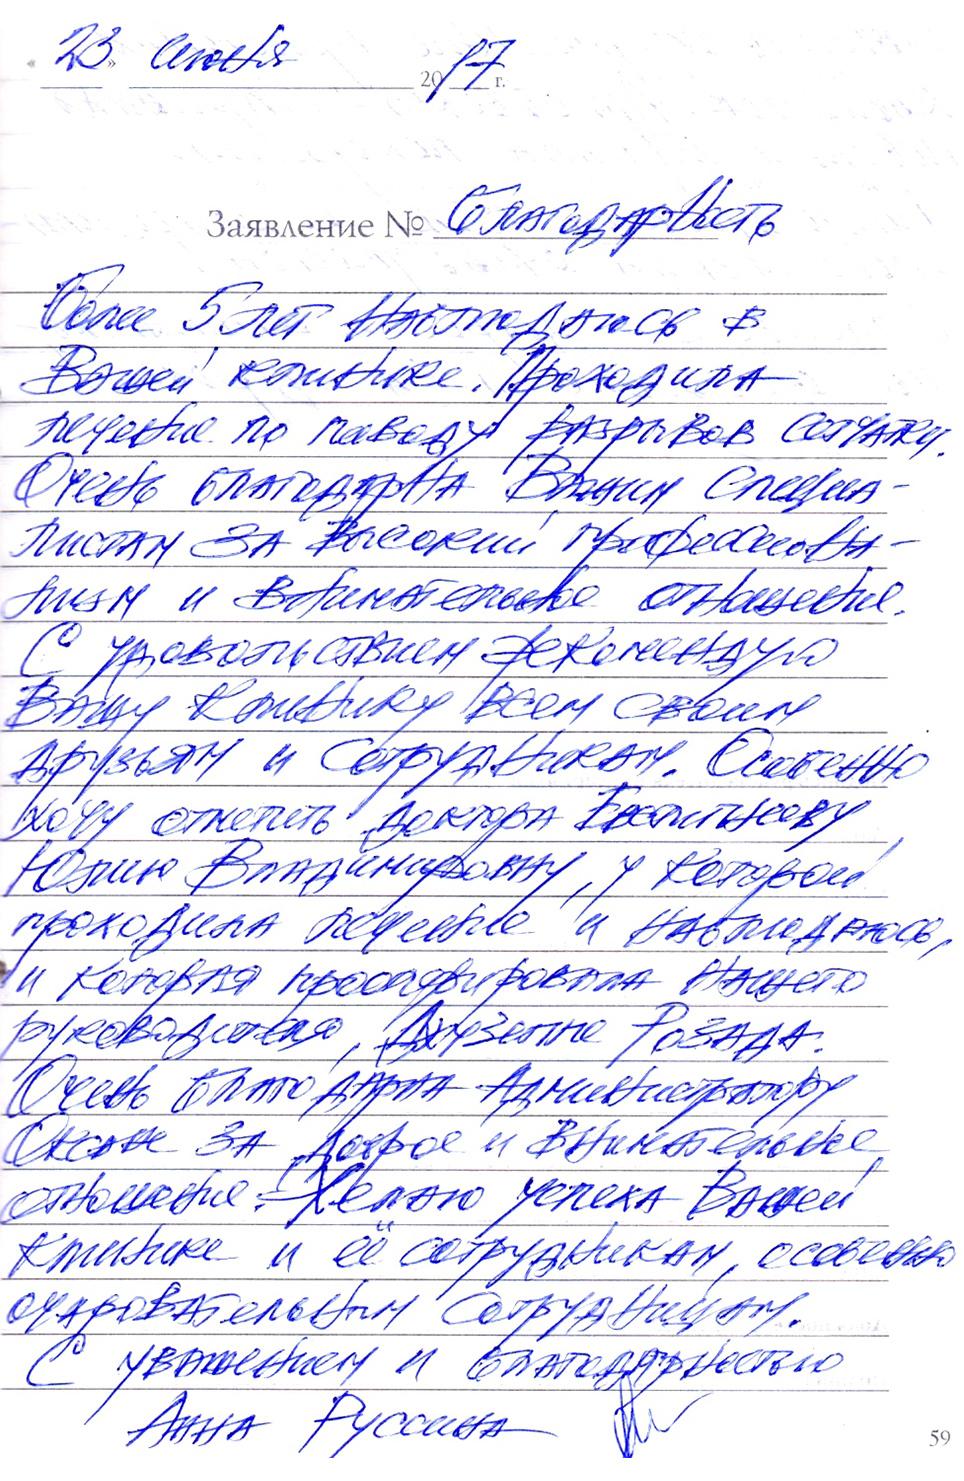 « 23 » июня 2017 г.
Заявление № Благодарность
Более 5 лет наблюдаюсь в
Вашей клинике. Проходила
лечение по поводу разрывов сетчатки.
Очень благодарна Вашим специа-
листам за высокий профессиона-
лизм и внимательное отношение.
С удовольствием рекомендую
Вашу клинику всем своим
друзьям и сотрудникам. Особенно
хочу отметить доктора
Юлию Владимировну, у которой
проходила лечение и наблюдаюсь,
и которая прооперировала нашего
руководителя, Джузеппе Розада.
Очень благодарна Администратору
Оксане за доброе и внимательное
отношение. Желаю успеха Вашей
клинике и её сотрудникам, особенно
очаровательным сотрудницам.
С уважением и благодарностью
Анна Руссина
59